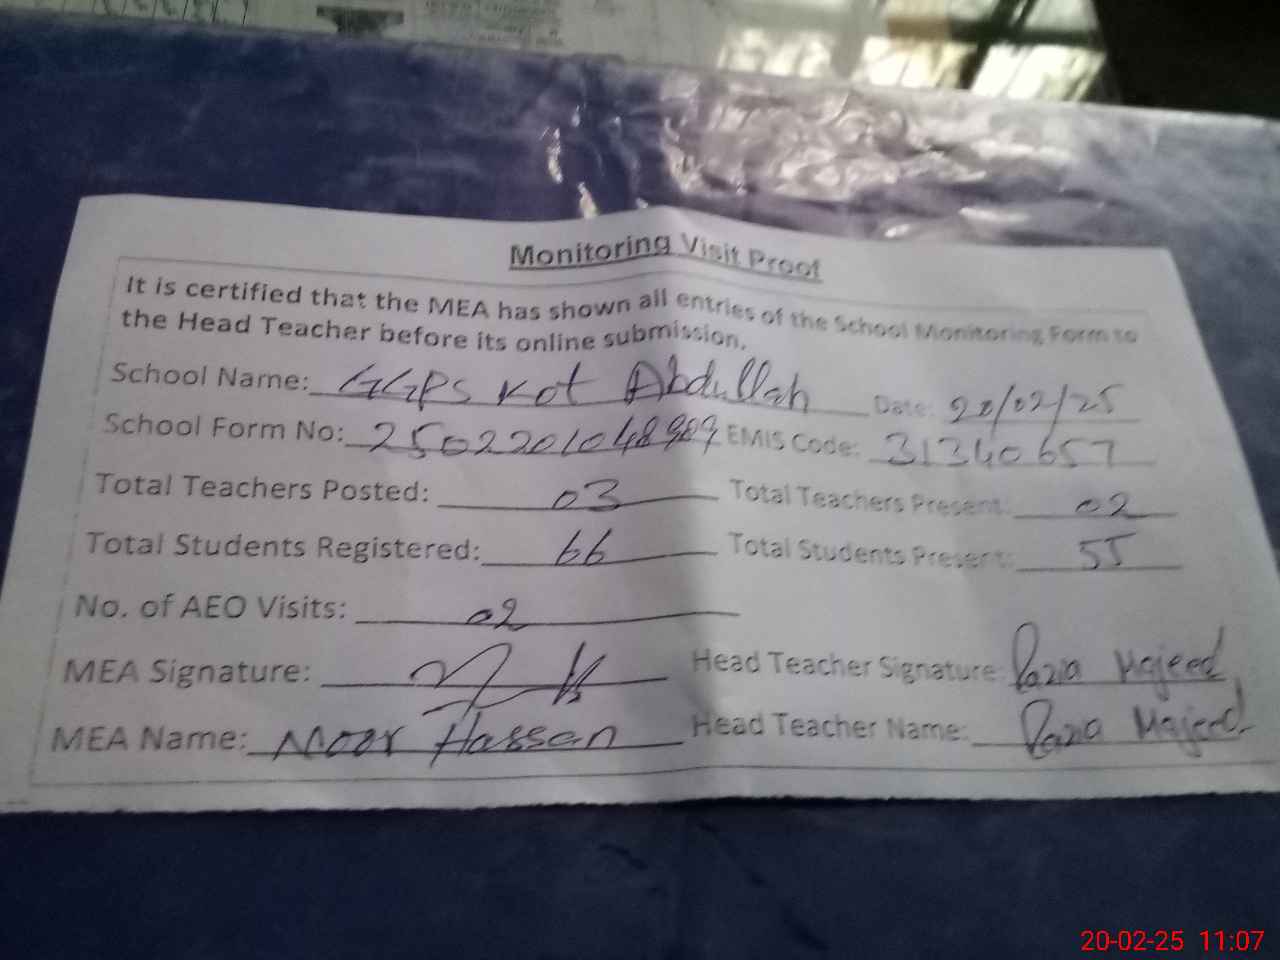 Monitoring Visit Proof
It is certified that the MEA has shown all entries of the School Monitoring Form to
the Head Teacher before its online submission.
School Name: GGPS Kot Abdullah Date: 20/02/25
School Form No: 2502201048989 EMIS Code: 31340657
Total Teachers Posted: 03 Total Teachers Present: 02
Total Students Registered: 66 Total Students Present: 55
No. of AEO Visits: 02
MEA Signature: Head Teacher Signature: Razia Majeed
MEA Name: Noor Hassan Head Teacher Name: Razia Majeed
20-02-25 11:07